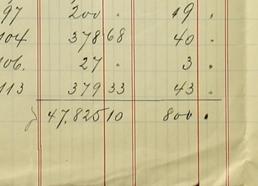 97 200 . 19 .
104 378 68 40 .
106. 27 . 3 .
113 379 33 43 .
47.825 10 800 .